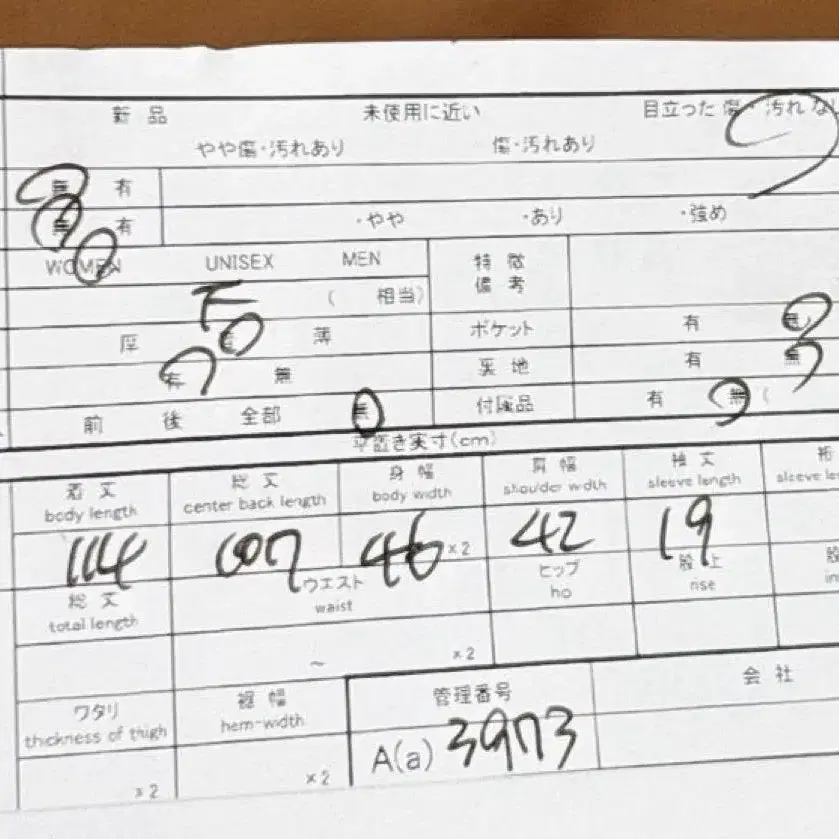 新品 未使用に近い 目立った傷・汚れな
やや傷・汚れあり 傷・汚れあり
無 有
無 有 ・やや ・あり ・強め
WOMEN UNISEX MEN 特徴
備考
F ( 相当)
厚 薄 ポケット 有 無
有 無 裏地 有 無
前 後 全部 無 付属品 有 (無(
平置き実寸(cm)
着丈 総丈 身幅 肩幅 袖丈 裄
body length center back length body width shoulder width sleeve length sleeve le
114 107 46 ×2 42 19
総丈 ウエスト ヒップ 股上 股
total length waist ho rise in
~ ×2
ワタリ 裾幅 管理番号 会社
thickness of thigh hem-width
×2 ×2 A(a) 3973